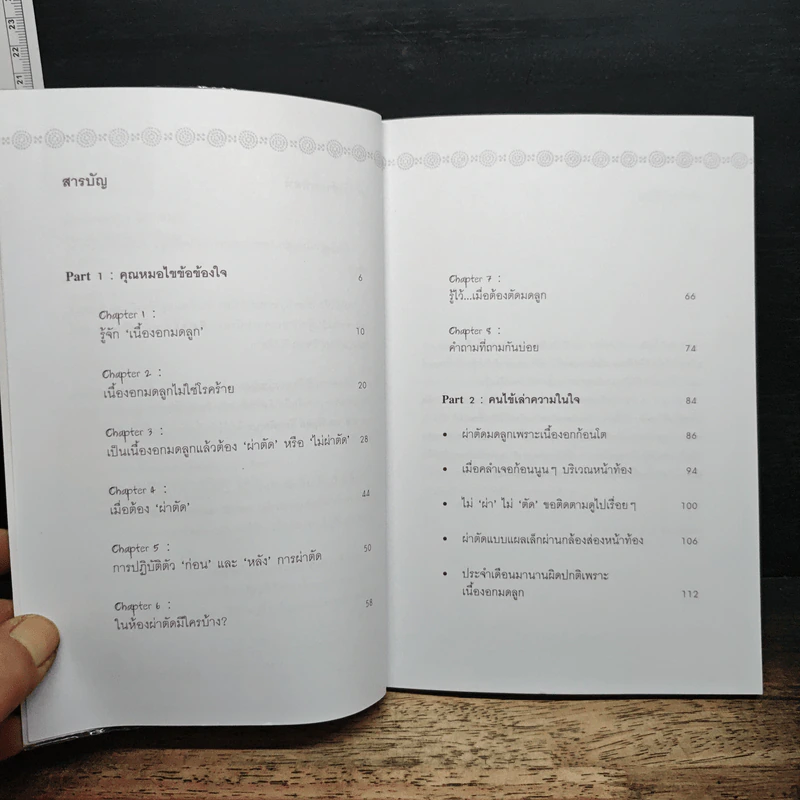 23
22
21
สารบัญ
Part 1 : คุณหมอไขข้อข้องใจ 6
Chapter 1 :
รู้จัก ‘เนื้องอกมดลูก’ 10
Chapter 2 :
เนื้องอกมดลูกไม่ใช่โรคร้าย 20
Chapter 3 :
เป็นเนื้องอกมดลูกแล้วต้อง ‘ผ่าตัด’ หรือ ‘ไม่ผ่าตัด’ 28
Chapter 4 :
เมื่อต้อง ‘ผ่าตัด’ 44
Chapter 5 :
การปฏิบัติตัว ‘ก่อน’ และ ‘หลัง’ การผ่าตัด 50
Chapter 6 :
ในห้องผ่าตัดมีใครบ้าง? 58
Chapter 7 :
รู้ไว้...เมื่อต้องตัดมดลูก 66
Chapter 8 :
คำถามที่ถามกันบ่อย 74
Part 2 : คนไข้เล่าความในใจ 84
• ผ่าตัดมดลูกเพราะเนื้องอกก้อนโต 86
• เมื่อคลำเจอก้อนนูนๆ บริเวณหน้าท้อง 94
• ไม่ ‘ผ่า’ ไม่ ‘ตัด’ ขอติดตามดูไปเรื่อยๆ 100
• ผ่าตัดแบบแผลเล็กผ่านกล้องส่องหน้าท้อง 106
• ประจำเดือนมานานผิดปกติเพราะ
เนื้องอกมดลูก 112